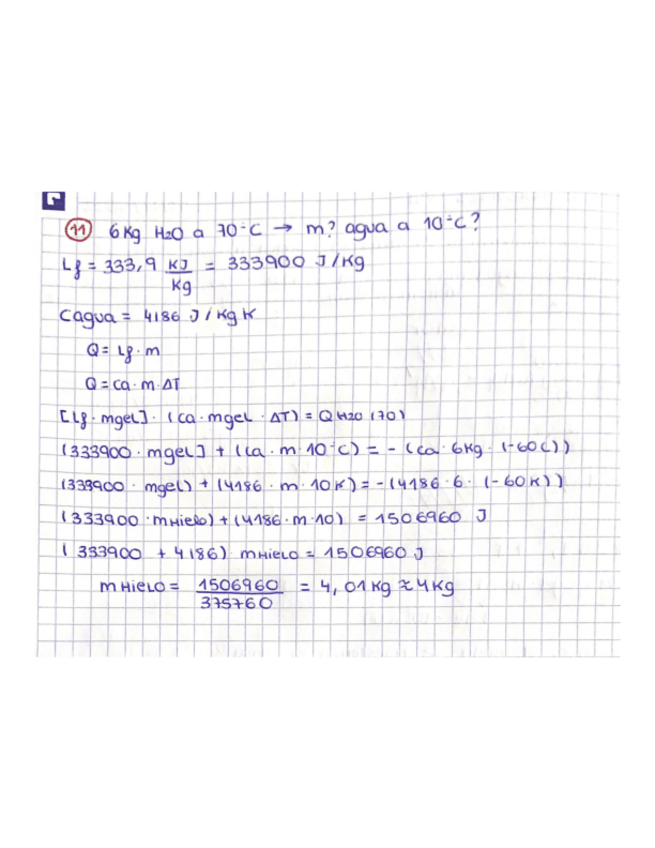 11 6 Kg H2O a 70°C → m? agua a 10°C?
Lf = 333,9 KJ/Kg = 333900 J/Kg
Cagua = 4186 J/Kg K
Q = Lf · m
Q = ca · m · ΔT
[Lf · mgel] · (ca · mgel · ΔT) = Q H2O (70)
(333900 · mgel] + (ca · m · 10°C) = - (ca · 6Kg · (-60C))
(333900 · mgel) + (4186 · m · 10K) = -(4186 · 6 · (-60K))
(333900 · mHielo) + (4186 · m · 10) = 1506960 J
(333900 + 4186) mHielo = 1506960 J
mHielo = 1506960/375760 = 4,01Kg ≈ 4Kg